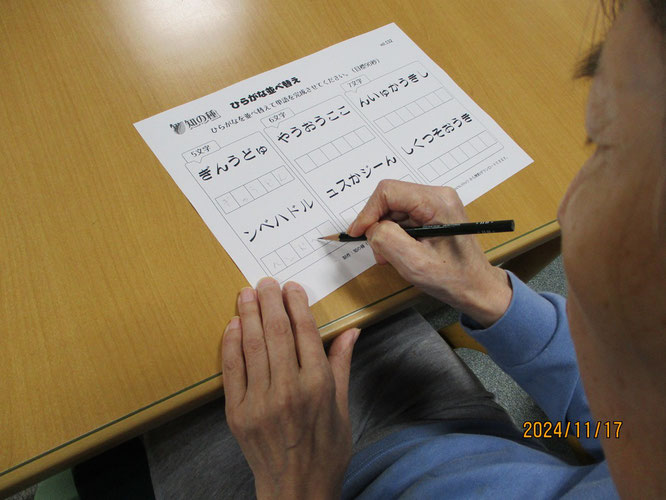 no.032
知の種
ひらがな並べ替え
ひらがなを並べ替えて単語を完成させてください。(目標90秒)
5文字
ぎんうどゅ
ぎゅうどん
ンペハドル
6文字
やうおうここ
ュスかジーん
7文字
んいゅかうぎし
しくつそおうき
2024/11/17